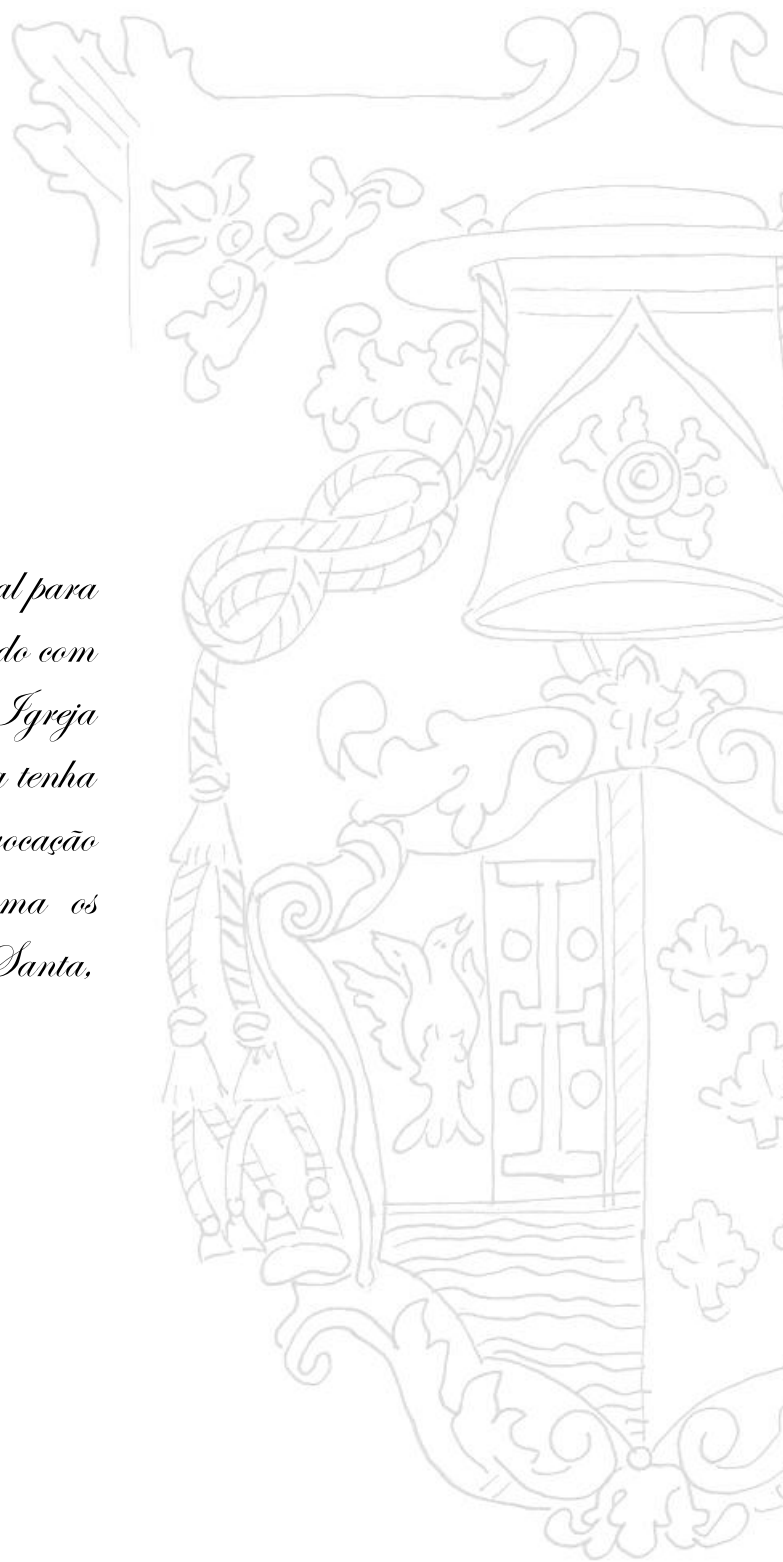 al para
do com
Igreja
tenha
ocação
ma os
Santa,